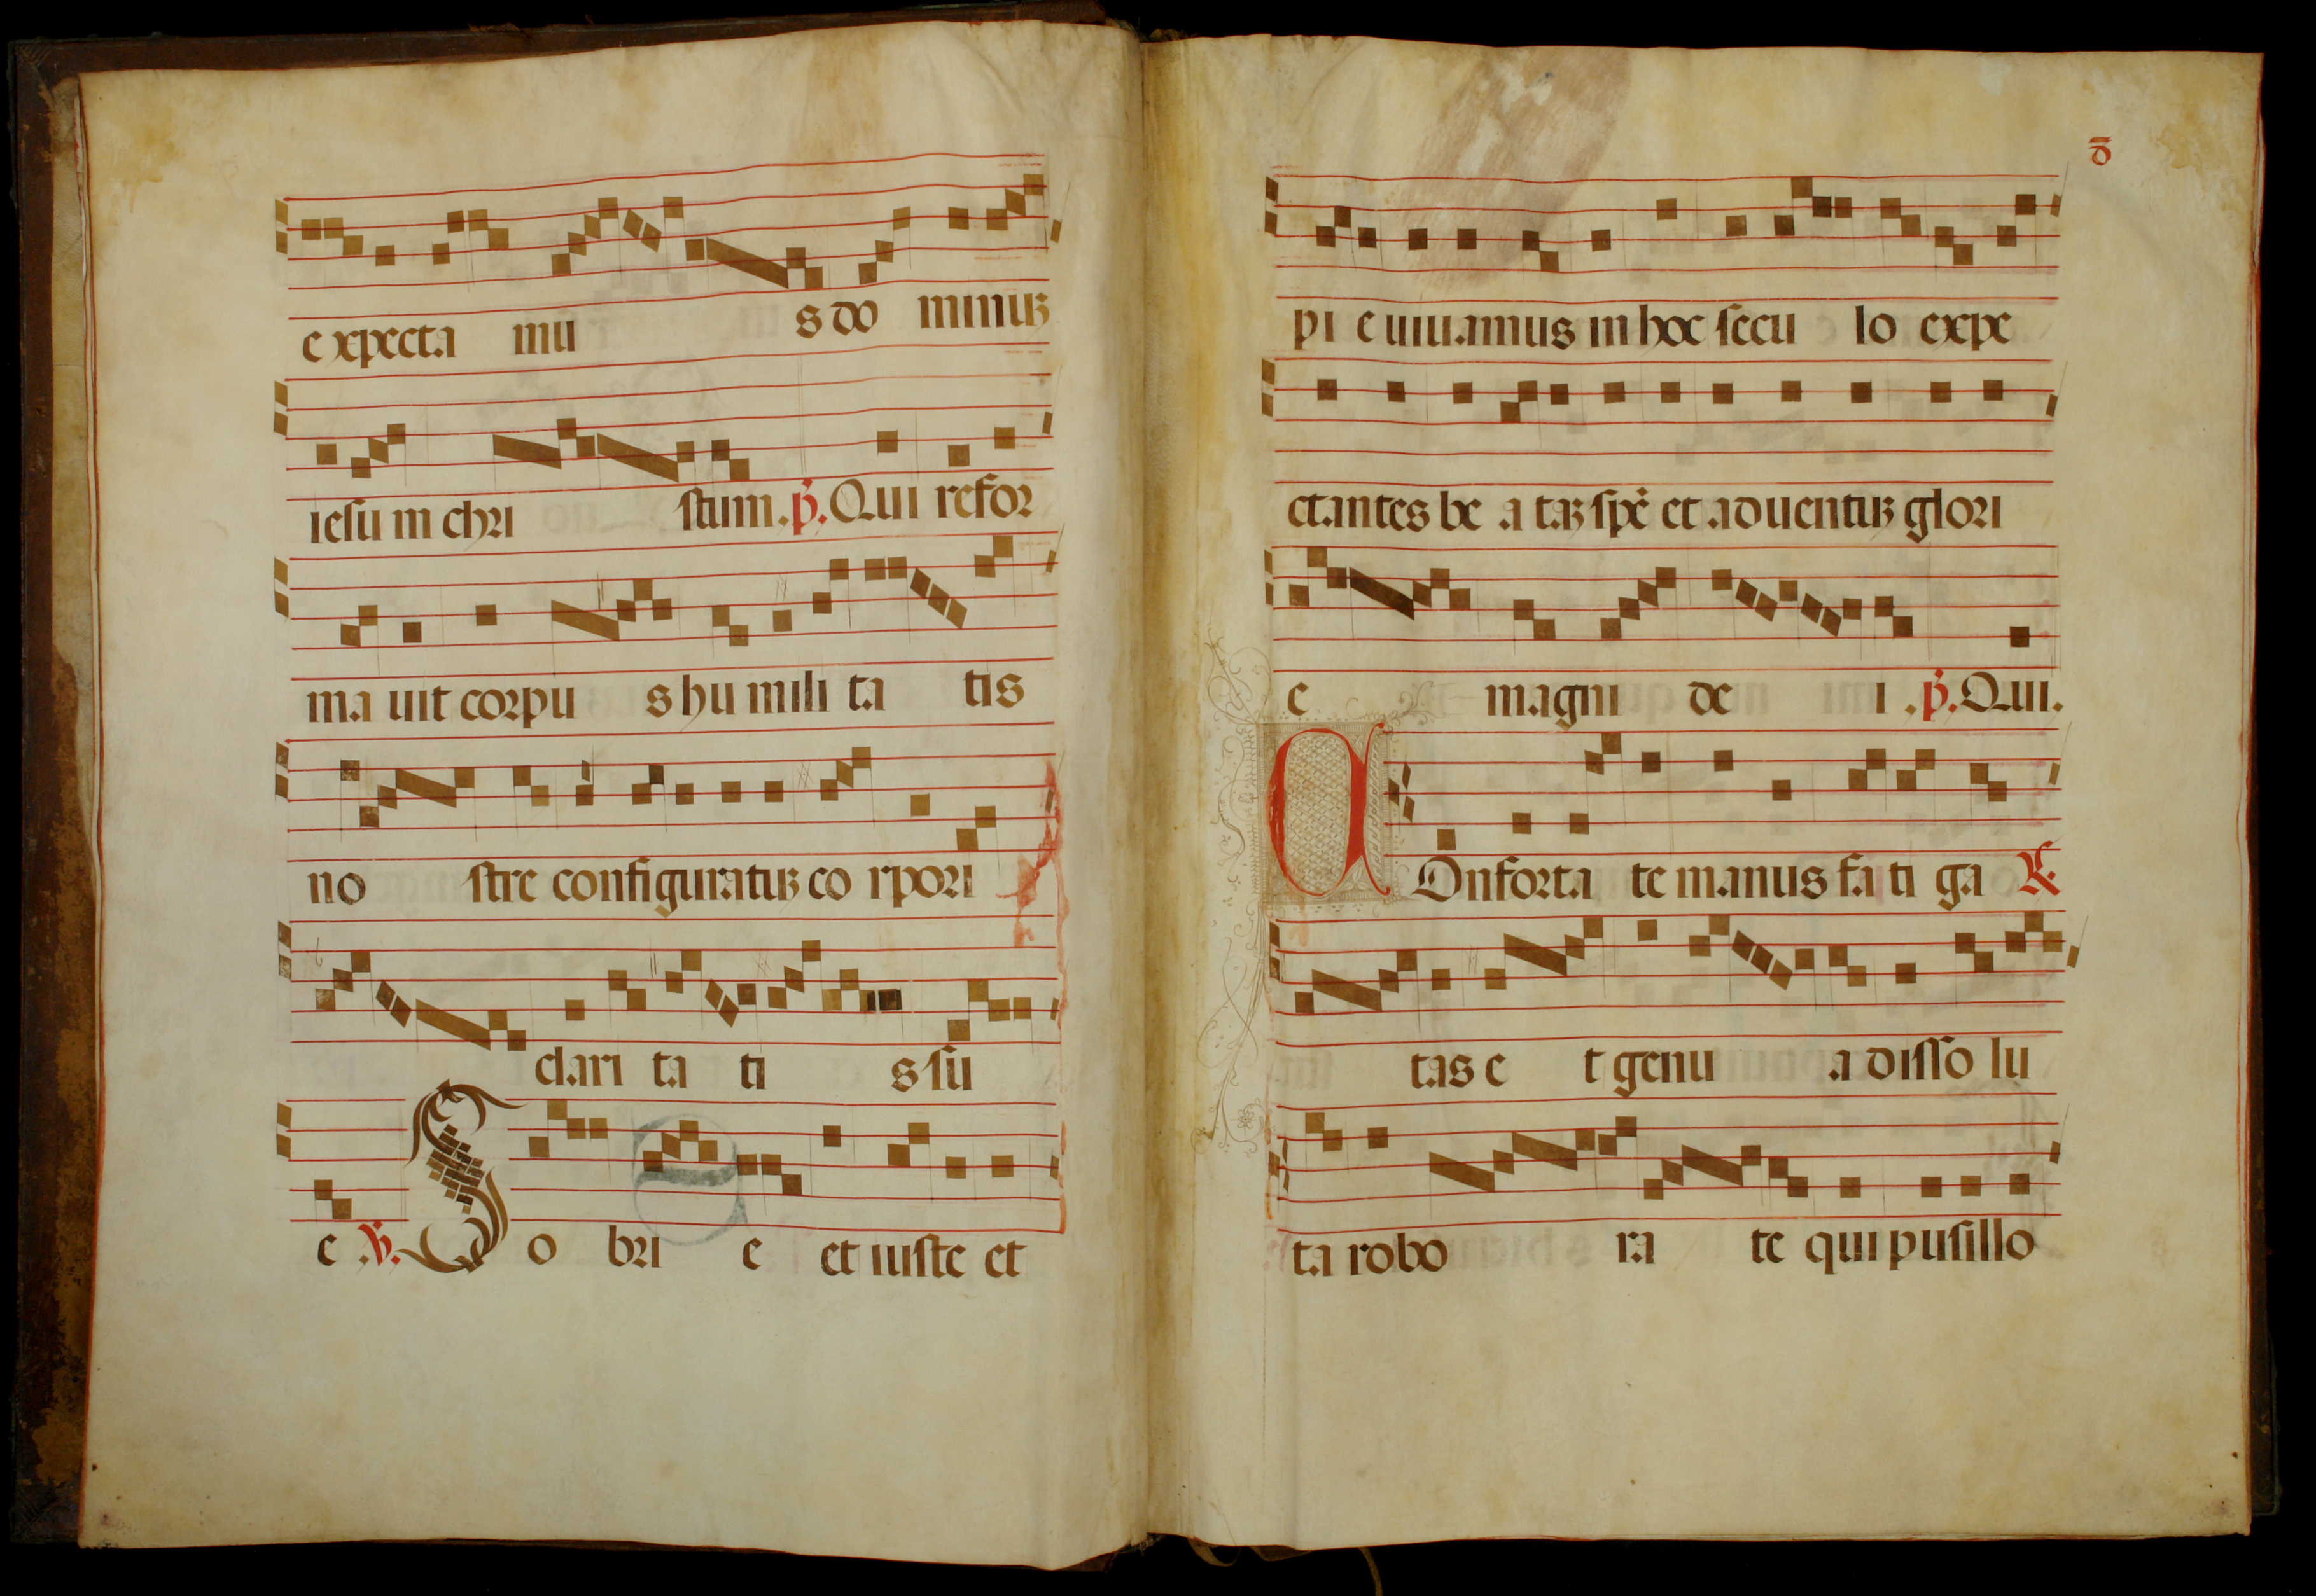 expecta mu s do minuʒ
iesum chri stum. p̄. Qui refor
ma uit corpu s hu mili ta tis
no stre configuratuʒ co rpori
clari ta ti s su
e ℣. S o bri e et iuste et
ꝺ̄
pi e uiuamus in hoc seculo expe
ctantes be a taʒ spē et aduentuʒ glori
e magni de i . p̄. Qui.
C Onforta te manus fati ga ℟.
tas e t genu a disso lu
ta robo ra te qui pusillo